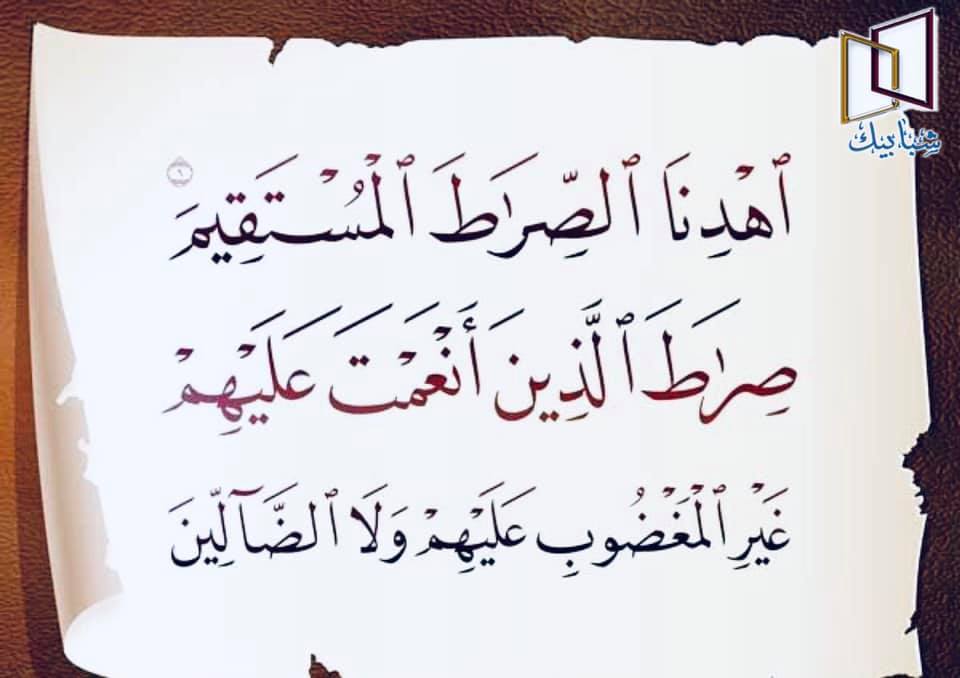 شبابيك
ٱهْدِنَا ٱلصِّرَٰطَ ٱلْمُسْتَقِيمَ ٦
صِرَٰطَ ٱلَّذِينَ أَنْعَمْتَ عَلَيْهِمْ
غَيْرِ ٱلْمَغْضُوبِ عَلَيْهِمْ وَلَا ٱلضَّآلِّينَ